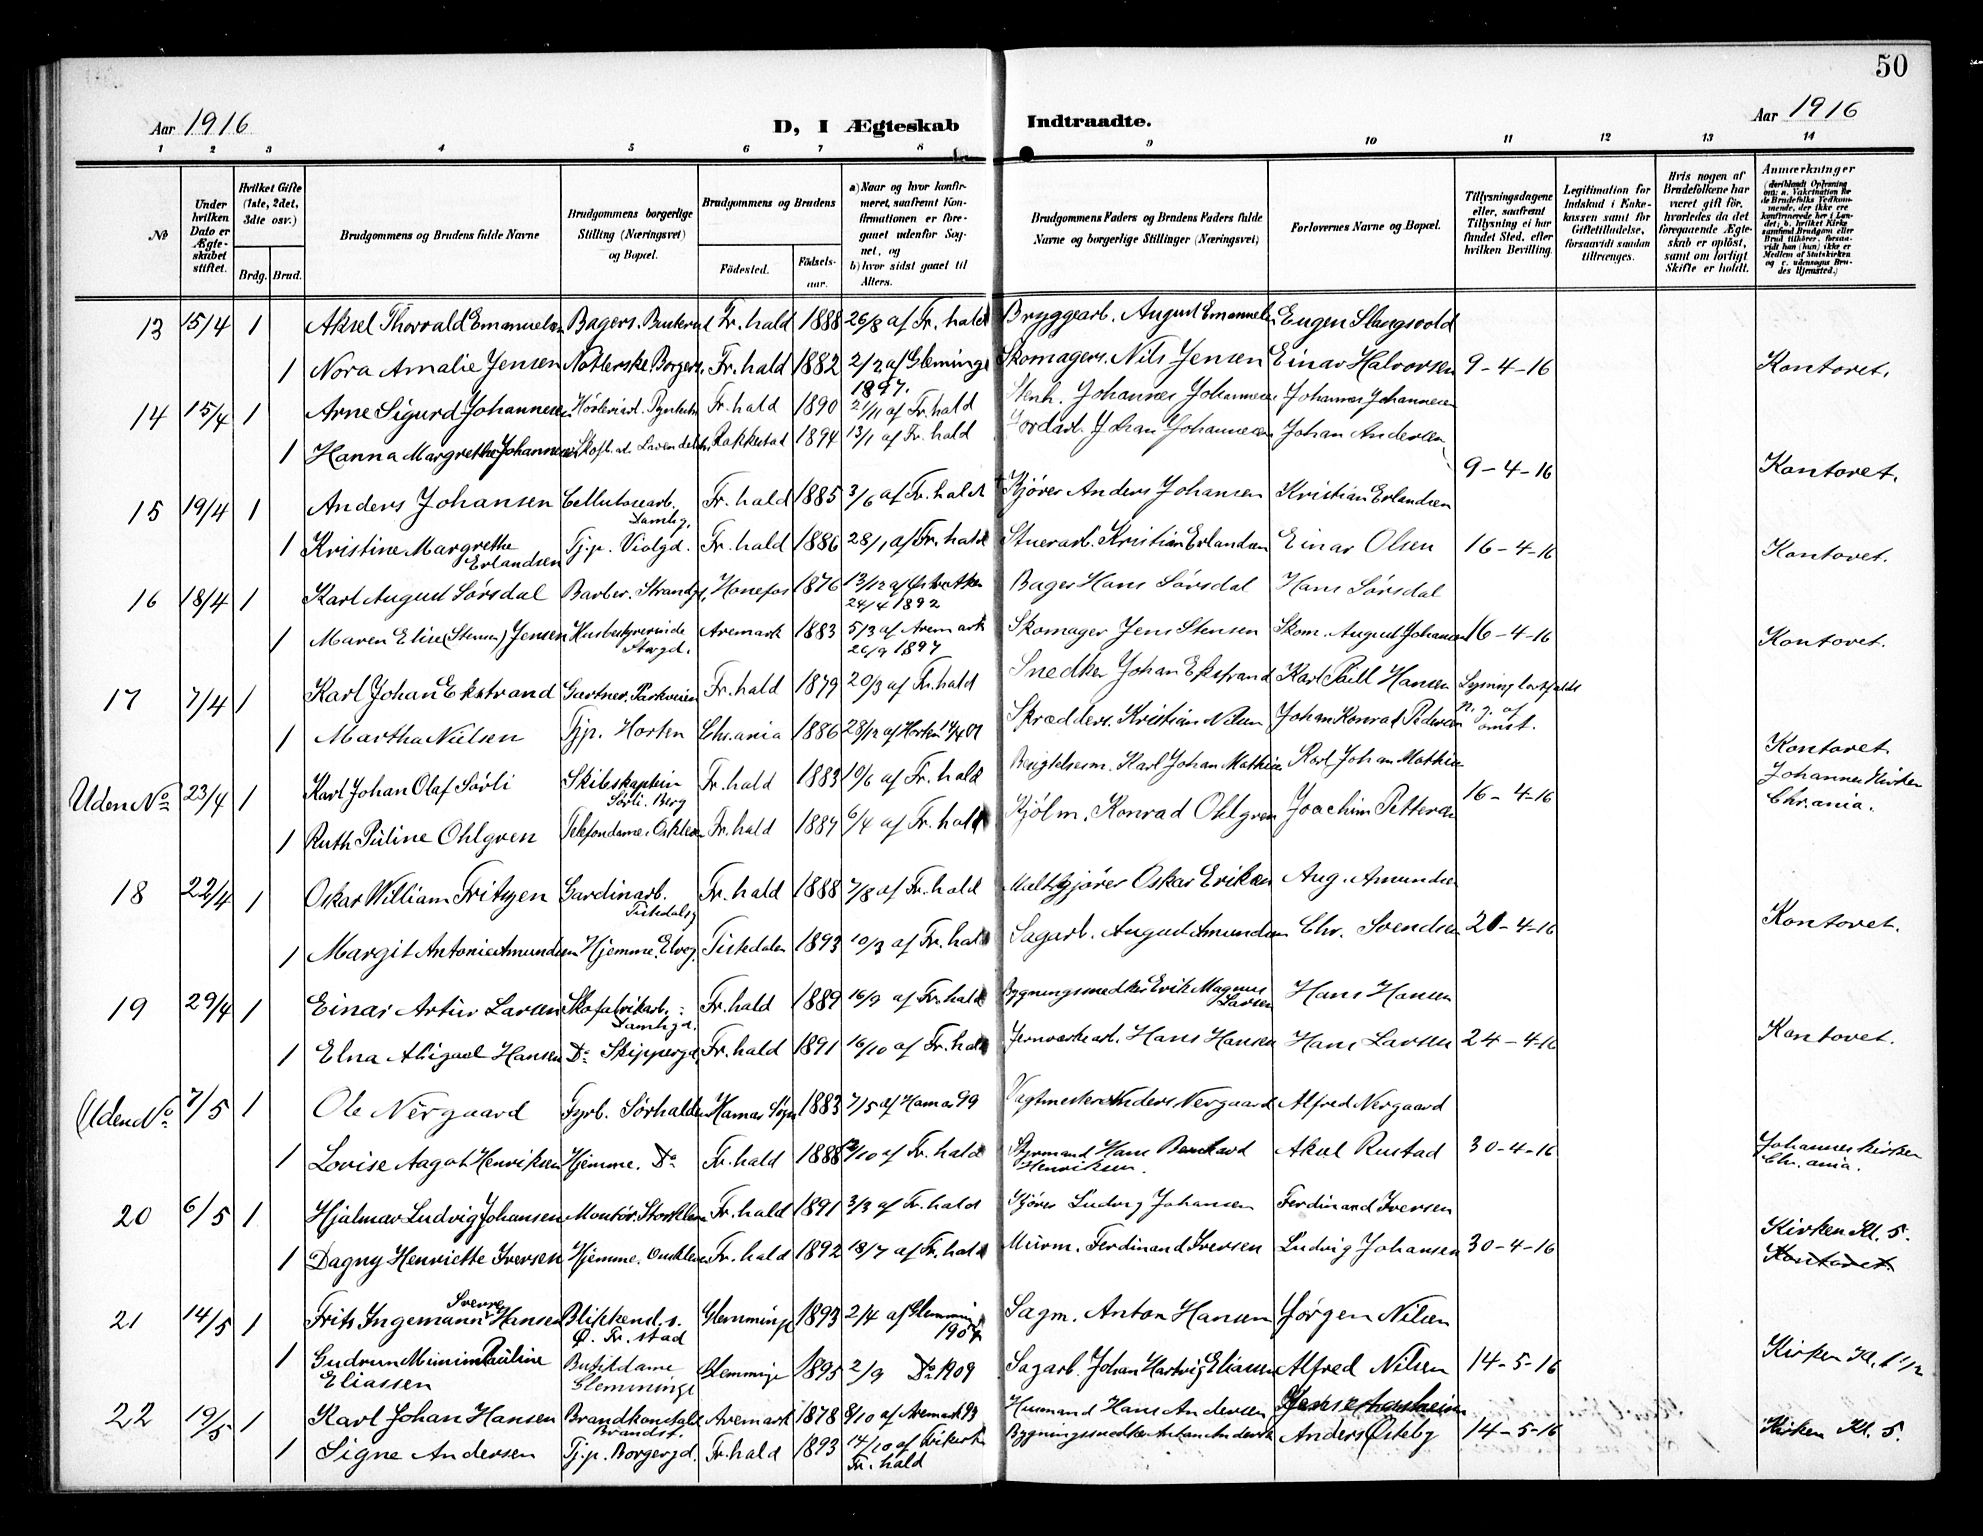 50
Aar 1916
D, I Ægteskab Indtraadte.
Aar 1916
1 2 3 4 5 6 7 8 9 10 11 12 13 14
№
Under hvilken Dato er Ægteskabet stiftet.
Hvilket Gifte (1ste, 2det, 3die osv.)
Brdg. Brud.
Brudgommens og Brudens fulde Navne
Brudgommens borgerlige Stilling (Næringsvei) og Bopæl.
Brudgommens og Brudens
Födested.
Födselsaar.
a) Naar og hvor konfirmeret, saafremt Konfirmationen er foregaaet udenför Sognet, og
b) hvor sidst gaaet til Alters.
Brudgommens Faders og Brudens Faders fulde Navne og borgerlige Stillinger (Næringsvei)
Forlovernes Navne og Bopæl.
Tillysningsdagene eller, saafremt Tillysning ei har fundet Sted, efter hvilken Bevilling.
Legitimation for Indskud i Enkekassen samt for Giftetilladelse, forsaavidt saadan tiltrænges.
Hvis nogen af Brudefolkene har været gift för, hvorledes da det foregaaende Ægteskab er oplöst, samt om lovligt Skifte er holdt.
Anmerkninger
(deriblandt Oplysning om: a. Vakcination for de Brudefolks Vedkommende, der ikke ere konfirmerede her i Landet; b. hvilket Kirkesamfund Brudgom eller Brud tilhörer, forsaavidt han (hun) ikke er Medlem af Statskirken og c. udensogns Brudes Hjemsted.)
13 15/4 1 Aksel Thorvald Emanuelsen Bagers. Fr. hald 1888 26/8 af Fr. hald Bryggearb. August Emanuelsen Eugen Slangsvold
1 Nora Amalie Jensen Fr. hald 1882 2/2 af Glemminge 1897. Skomagers. Nils Jensen Einar Halvorsen 9-4-16 Kontoret.
14 15/4 1 Arne Sigurd Johannesen Fr. hald 1890 21/11 af Fr. hald Stenh. Johannes Johannesen Johannes Johannesen
1 Hanna Margrethe Johannesen Rakkestad 1894 13/1 af Fr. hald Jordarb. Johan Johannesen Johan Andersen 9-4-16 Kontoret.
15 19/4 1 Anders Johansen Cellulosearb. Damhg. Fr. hald 1885 3/6 af Fr. hald Kjörer Anders Johansen Kristian Erlandsen
1 Kristine Margrethe Erlandsen Tj.p. Violgd. Fr. hald 1886 28/1 af Fr. hald Stuerarb. Kristian Erlandsen Einar Olsen 16-4-16 Kontoret.
16 18/4 1 Karl August Sørsdal Barber. Strandg. Hønefos 1876 24/4 1892 Bager Hans Sørsdal Hans Sørsdal
1 Maren Elise (Stensen) Jensen Husbestyrerinde Storgd. Aremark 1883 5/3 af Aremark 26/9 1897 Skomager Jens Stensen Skom. August Johansen 16-4-16 Kontoret.
17 7/4 1 Karl Johan Ekstrand Gartner. Parkveien Fr. hald 1879 20/3 af Fr. hald Snedker Johan Ekstrand Karl Paul Hansen Lysning bortfaldt p. g. af omst.
1 Martha Nielsen Tj.p. Horten Chr.ania 1886 28/12 af Horten 14/4 01 Skrædders. Kristian Nilsen Johan Konrad Pedersen Kontoret.
Uden No 23/4 1 Karl Johan Olaf Sørli Skibskaptein Sørli. Berg Fr. hald 1883 19/6 af Fr. hald Karl Johan Mathisen Karl Johan Mathisen 16-4-16 Johannes Kirken Chr.ania.
1 Ruth Püline Ohlgren Telefondame. Fr. hald 1887 6/4 af Fr. hald Kjølm. Konrad Ohlgren Joachim Pettersen
18 22/4 1 Oskar William Fritsjen Gardinarb. Tistedalsg Fr. hald 1888 7/8 af Fr. hald Oskar Eriksen Aug. Amundsen
1 Margit Antonie Amundsen Hjemme. Elveg. Tistedalen 1893 10/3 af Fr. hald Sagarb. August Amundsen Chr. Svendsen 20-4-16 Kontoret.
19 29/4 1 Einar Artur Larsen Skofabrikarb. Damhgd. Fr. hald 1889 16/9 af Fr. hald Bygningssnedker Erik Magnus Larsen Hans Hansen
1 Elna Abigael Hansen Do Skippergd. Fr. hald 1891 16/10 af Fr. hald Jernverksarb. Hans Hansen Hans Larsen 24-4-16 Kontoret.
Uden No 7/5 1 Ole Nergaard Fyrb. Sørhalden Hamar Sogn 1883 7/5 af Hamar 99 Vagtmester Anders Nergaard Alfred Nergaard
1 Lovise Aagot Henriksen Hjemme. Do Fr. hald 1888 /10 af Fr. hald Styrmand Hans Bernhard Henriksen Aksel Rustad 30-4-16 Johannes kirken Chr.ania.
20 6/5 1 Hjalmar Ludvig Johansen Montør. Fr. hald 1891 3/3 af Fr. hald Kjörer Ludvig Johansen Ferdinand Iversen
1 Dagny Henriette Iversen Hjemme. Fr. hald 1892 13/7 af Fr. hald Murm. Ferdinand Iversen Ludvig Johansen 30-4-16 Kirken Kl. 5. Kontoret.
21 14/5 1 Frits Ingemann Sverre Hansen Blikkensl. s. Ø. Fr. stad Glemminge 1893 2/4 af Glemminge 1907 Sagm. Anton Hansen Jørgen Nilsen
1 Gudrun Mimimi Püline Eliassen Butikdame Glemminge Glemminge 1895 2/9 Do 1909 Sagarb. Johan Hartvig Eliassen Alfred Nilsen 14-5-16 Kirken Kl. 6 1/2
22 19/5 1 Karl Johan Hansen Brandkonstabel Brandst. Aremark 1878 8/10 af Aremark 93 Husmand Hans Andersen
1 Signe Andersen Tj.p. Borgergd. Fr. hald 1893 14/10 af Fr. hald Bygningssnedker Anton Andersen Anders Østeby 14-5-16 Kirken Kl. 5.